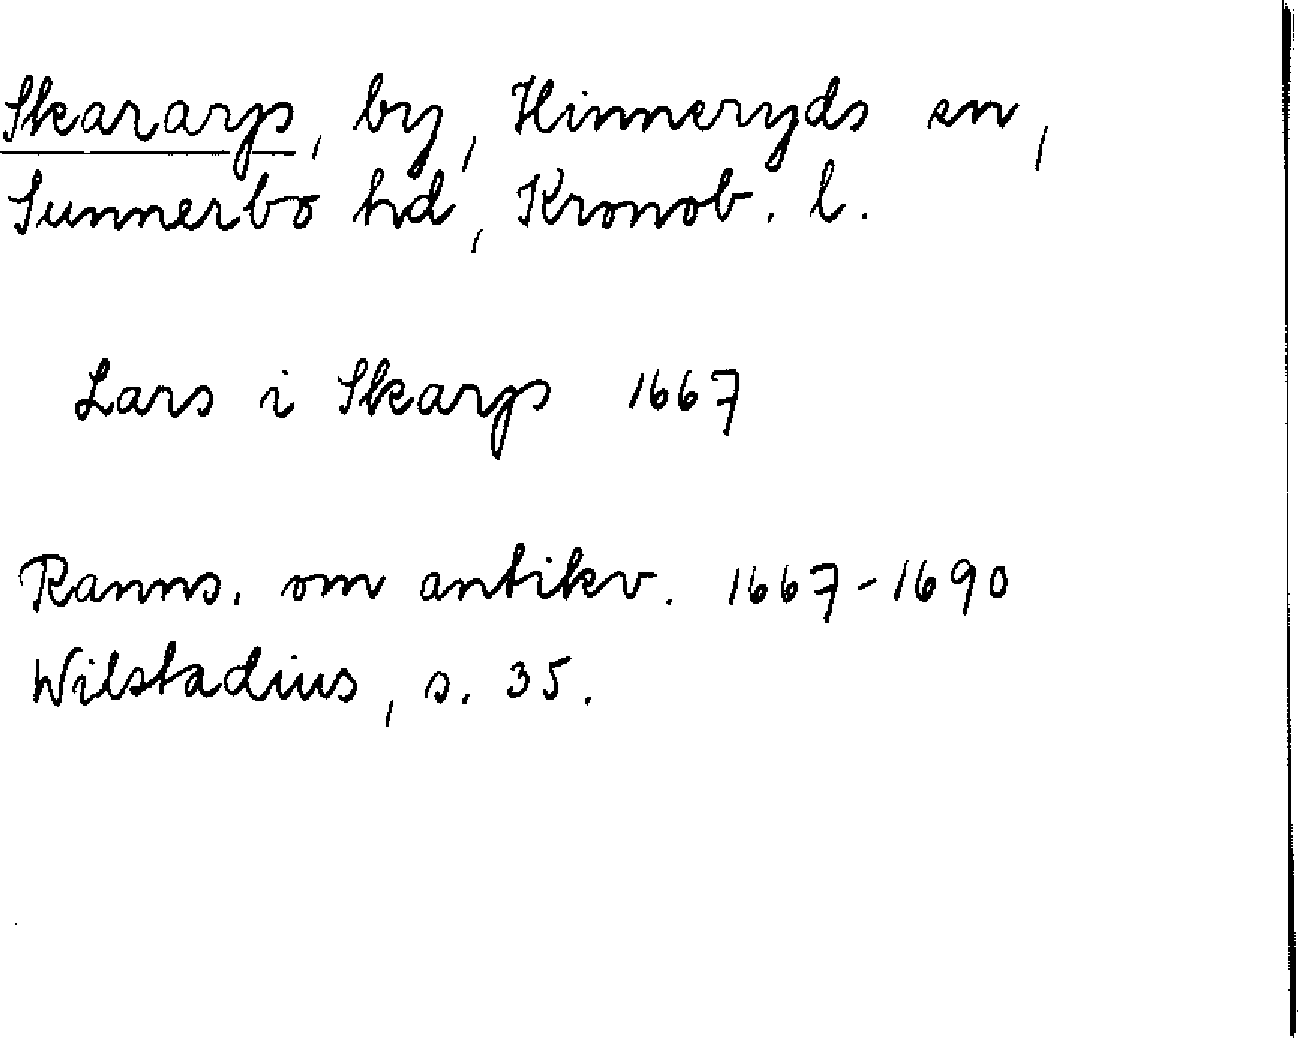 Skararp, by, Hinneryds sn,
Sunnerbo hd, Kronob. l.
Lars i Skarp 1667
Ranns. om antikv. 1667-1690
Wilstadius, s. 35.